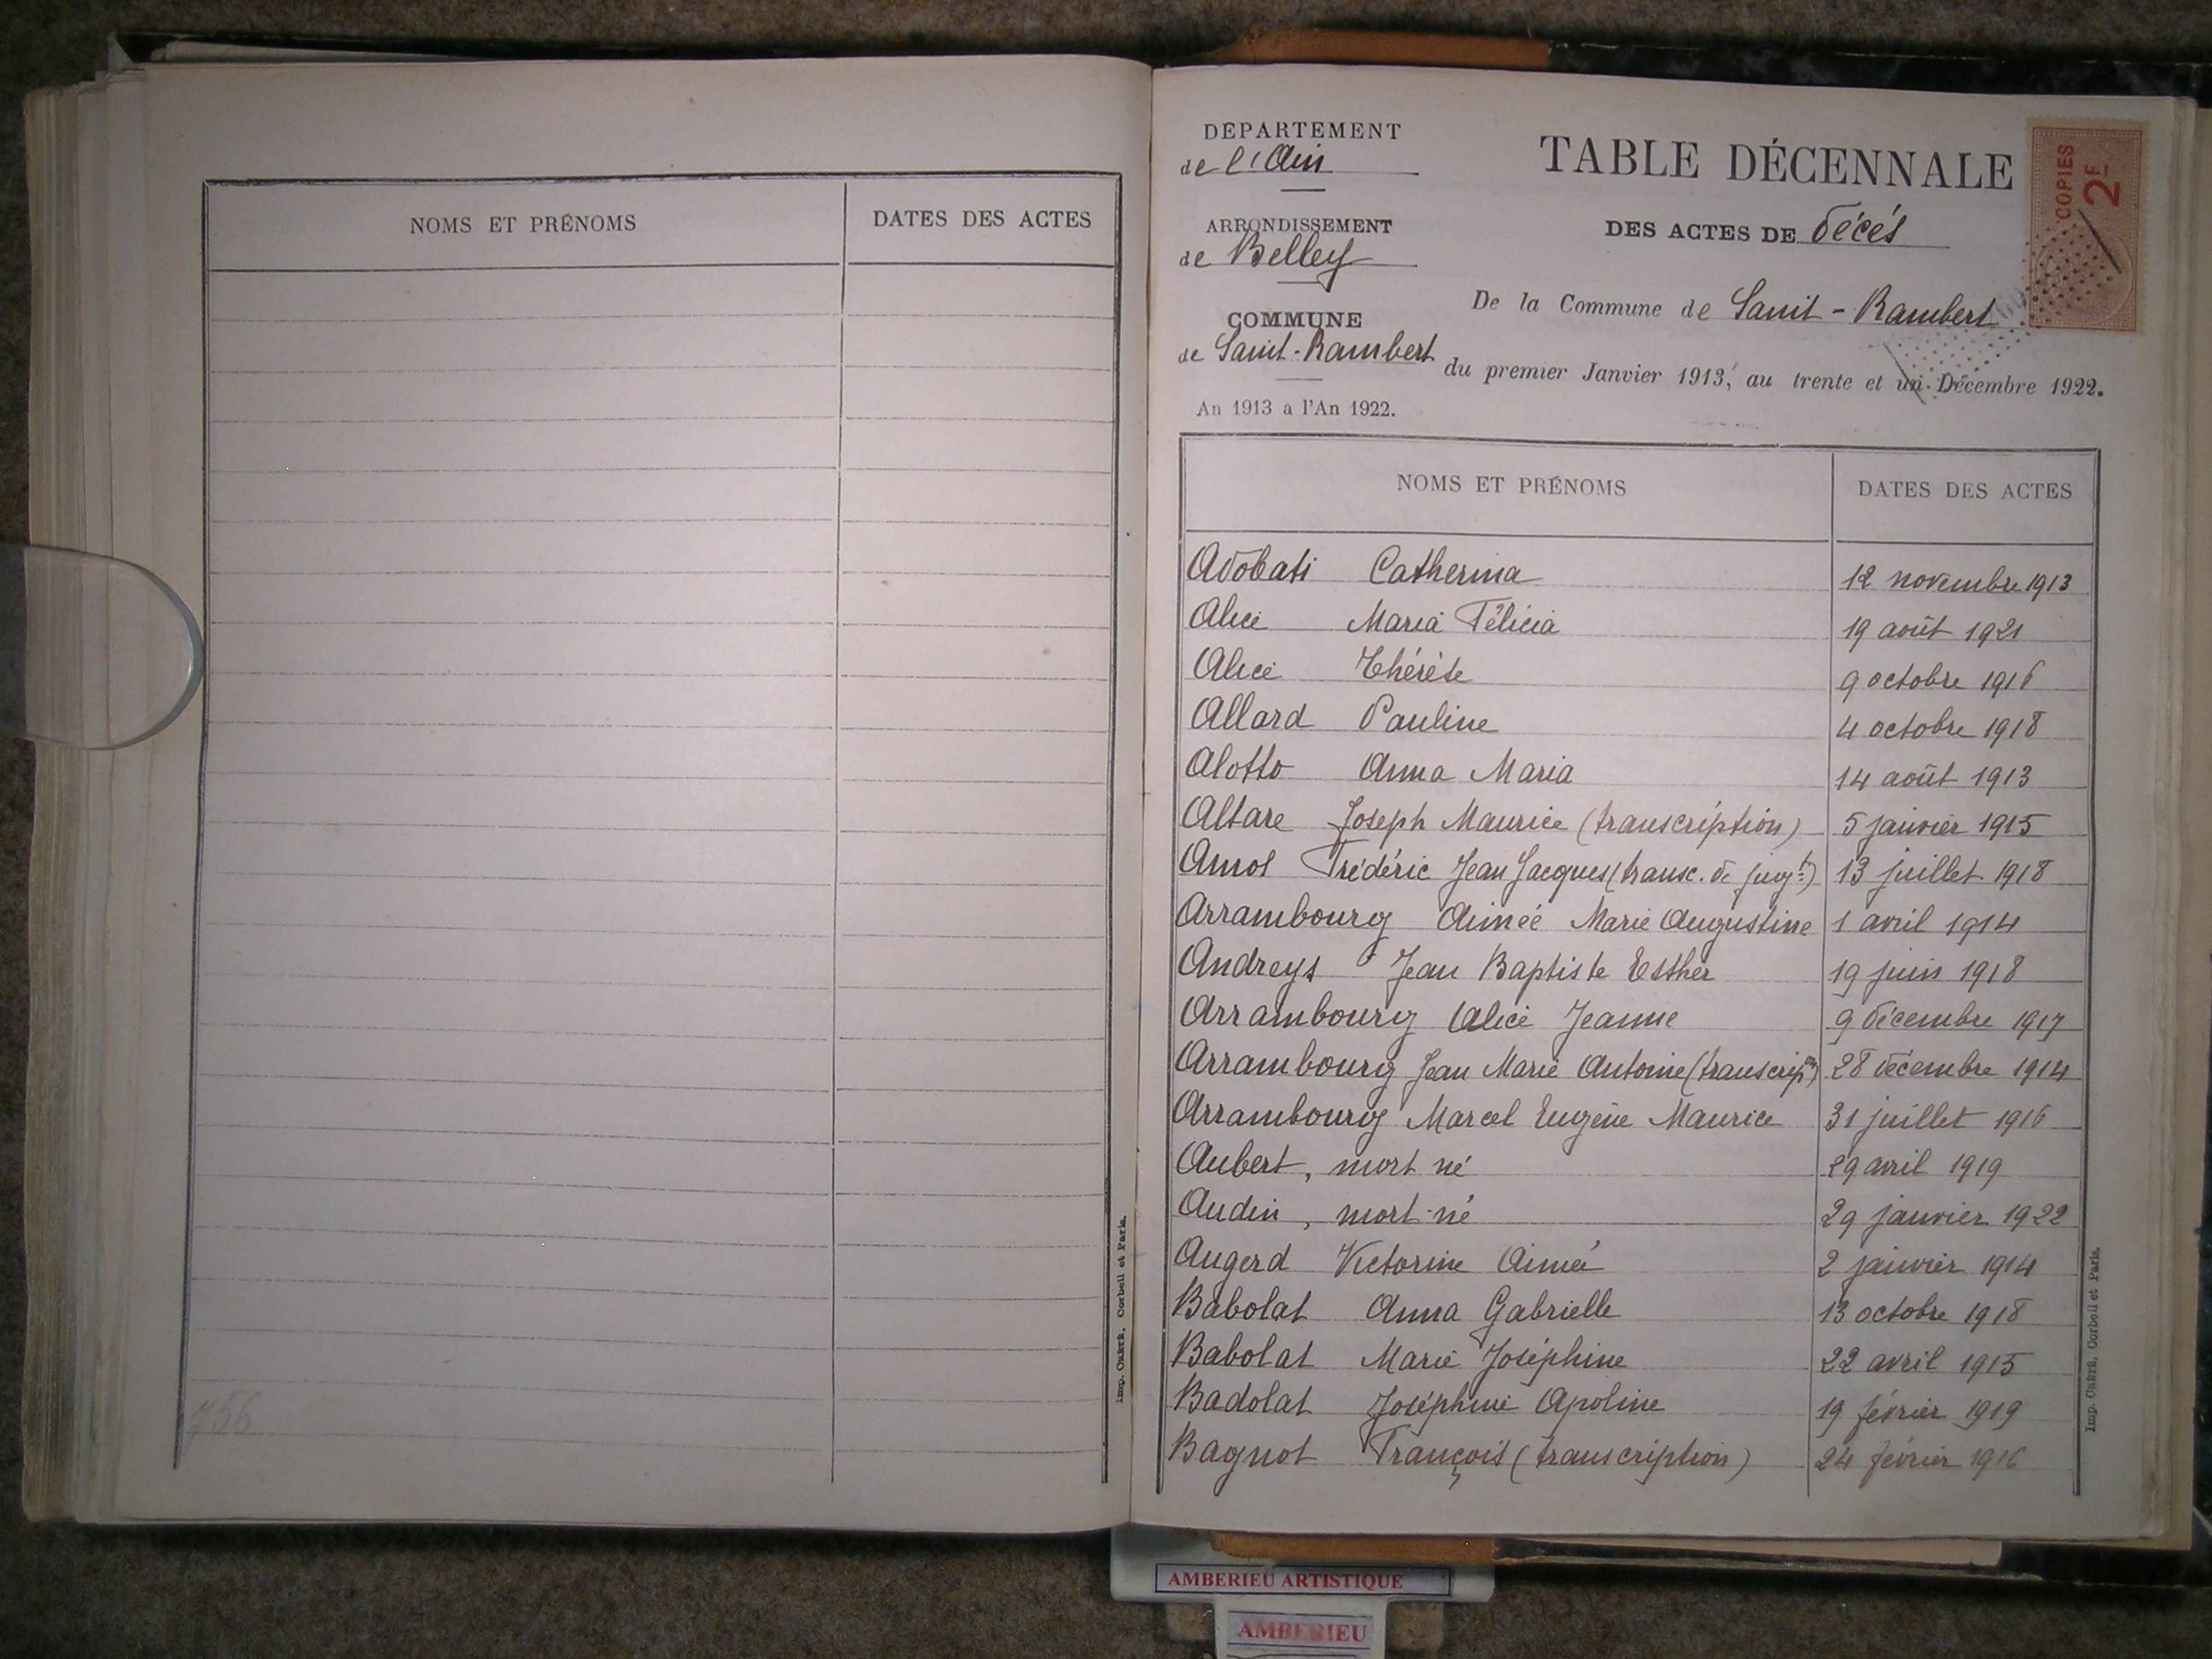 NOMS ET PRÉNOMS
DATES DES ACTES
756
Imp. CRÉTÉ, Corbeil et Paris.
DEPARTEMENT
de l'Ain
ARRONDISSEMENT
de Belley
COMMUNE
de Saint-Rambert
An 1913 à l'An 1922.
TABLE DÉCENNALE
DES ACTES DE décés
De la Commune de Saint-Rambert
du premier Janvier 1913, au trente et un Décembre 1922.
COPIES
2F
NOMS ET PRÉNOMS
DATES DES ACTES
Adobati Catherina 12 novembre 1913
Alice Maria Félicia 19 août 1921
Alice Thérèse 9 octobre 1916
Allard Pauline 4 octobre 1918
Alotto Anna Maria 14 août 1913
Altare Joseph Maurice (transcription) 5 janvier 1915
Amos Frédéric Jean Jacques (transc. de jugt) 13 juillet 1918
Arrambourg Aimée Marie Augustine 1 avril 1914
Andreys Jean Baptiste Esther 19 juin 1918
Arrambourg Alice Jeanne 9 décembre 1917
Arrambourg Jean Marie Antoine (transcripon) 28 décembre 1914
Arrambourg Marcel Eugène Maurice 31 juillet 1916
Aubert, mort né 29 avril 1919
Audin, mort-né 29 janvier 1922
Augerd Victorine Aimée 2 janvier 1914
Babolat Anna Gabrielle 13 octobre 1918
Babolat Marie Joséphine 22 avril 1915
Badolat Joséphine Apoline 19 février 1919
Bagnot François (transcription) 24 février 1916
Imp. CRÉTÉ, Corbeil et Paris.
AMBERIEU ARTISTIQUE
AMBERIEU